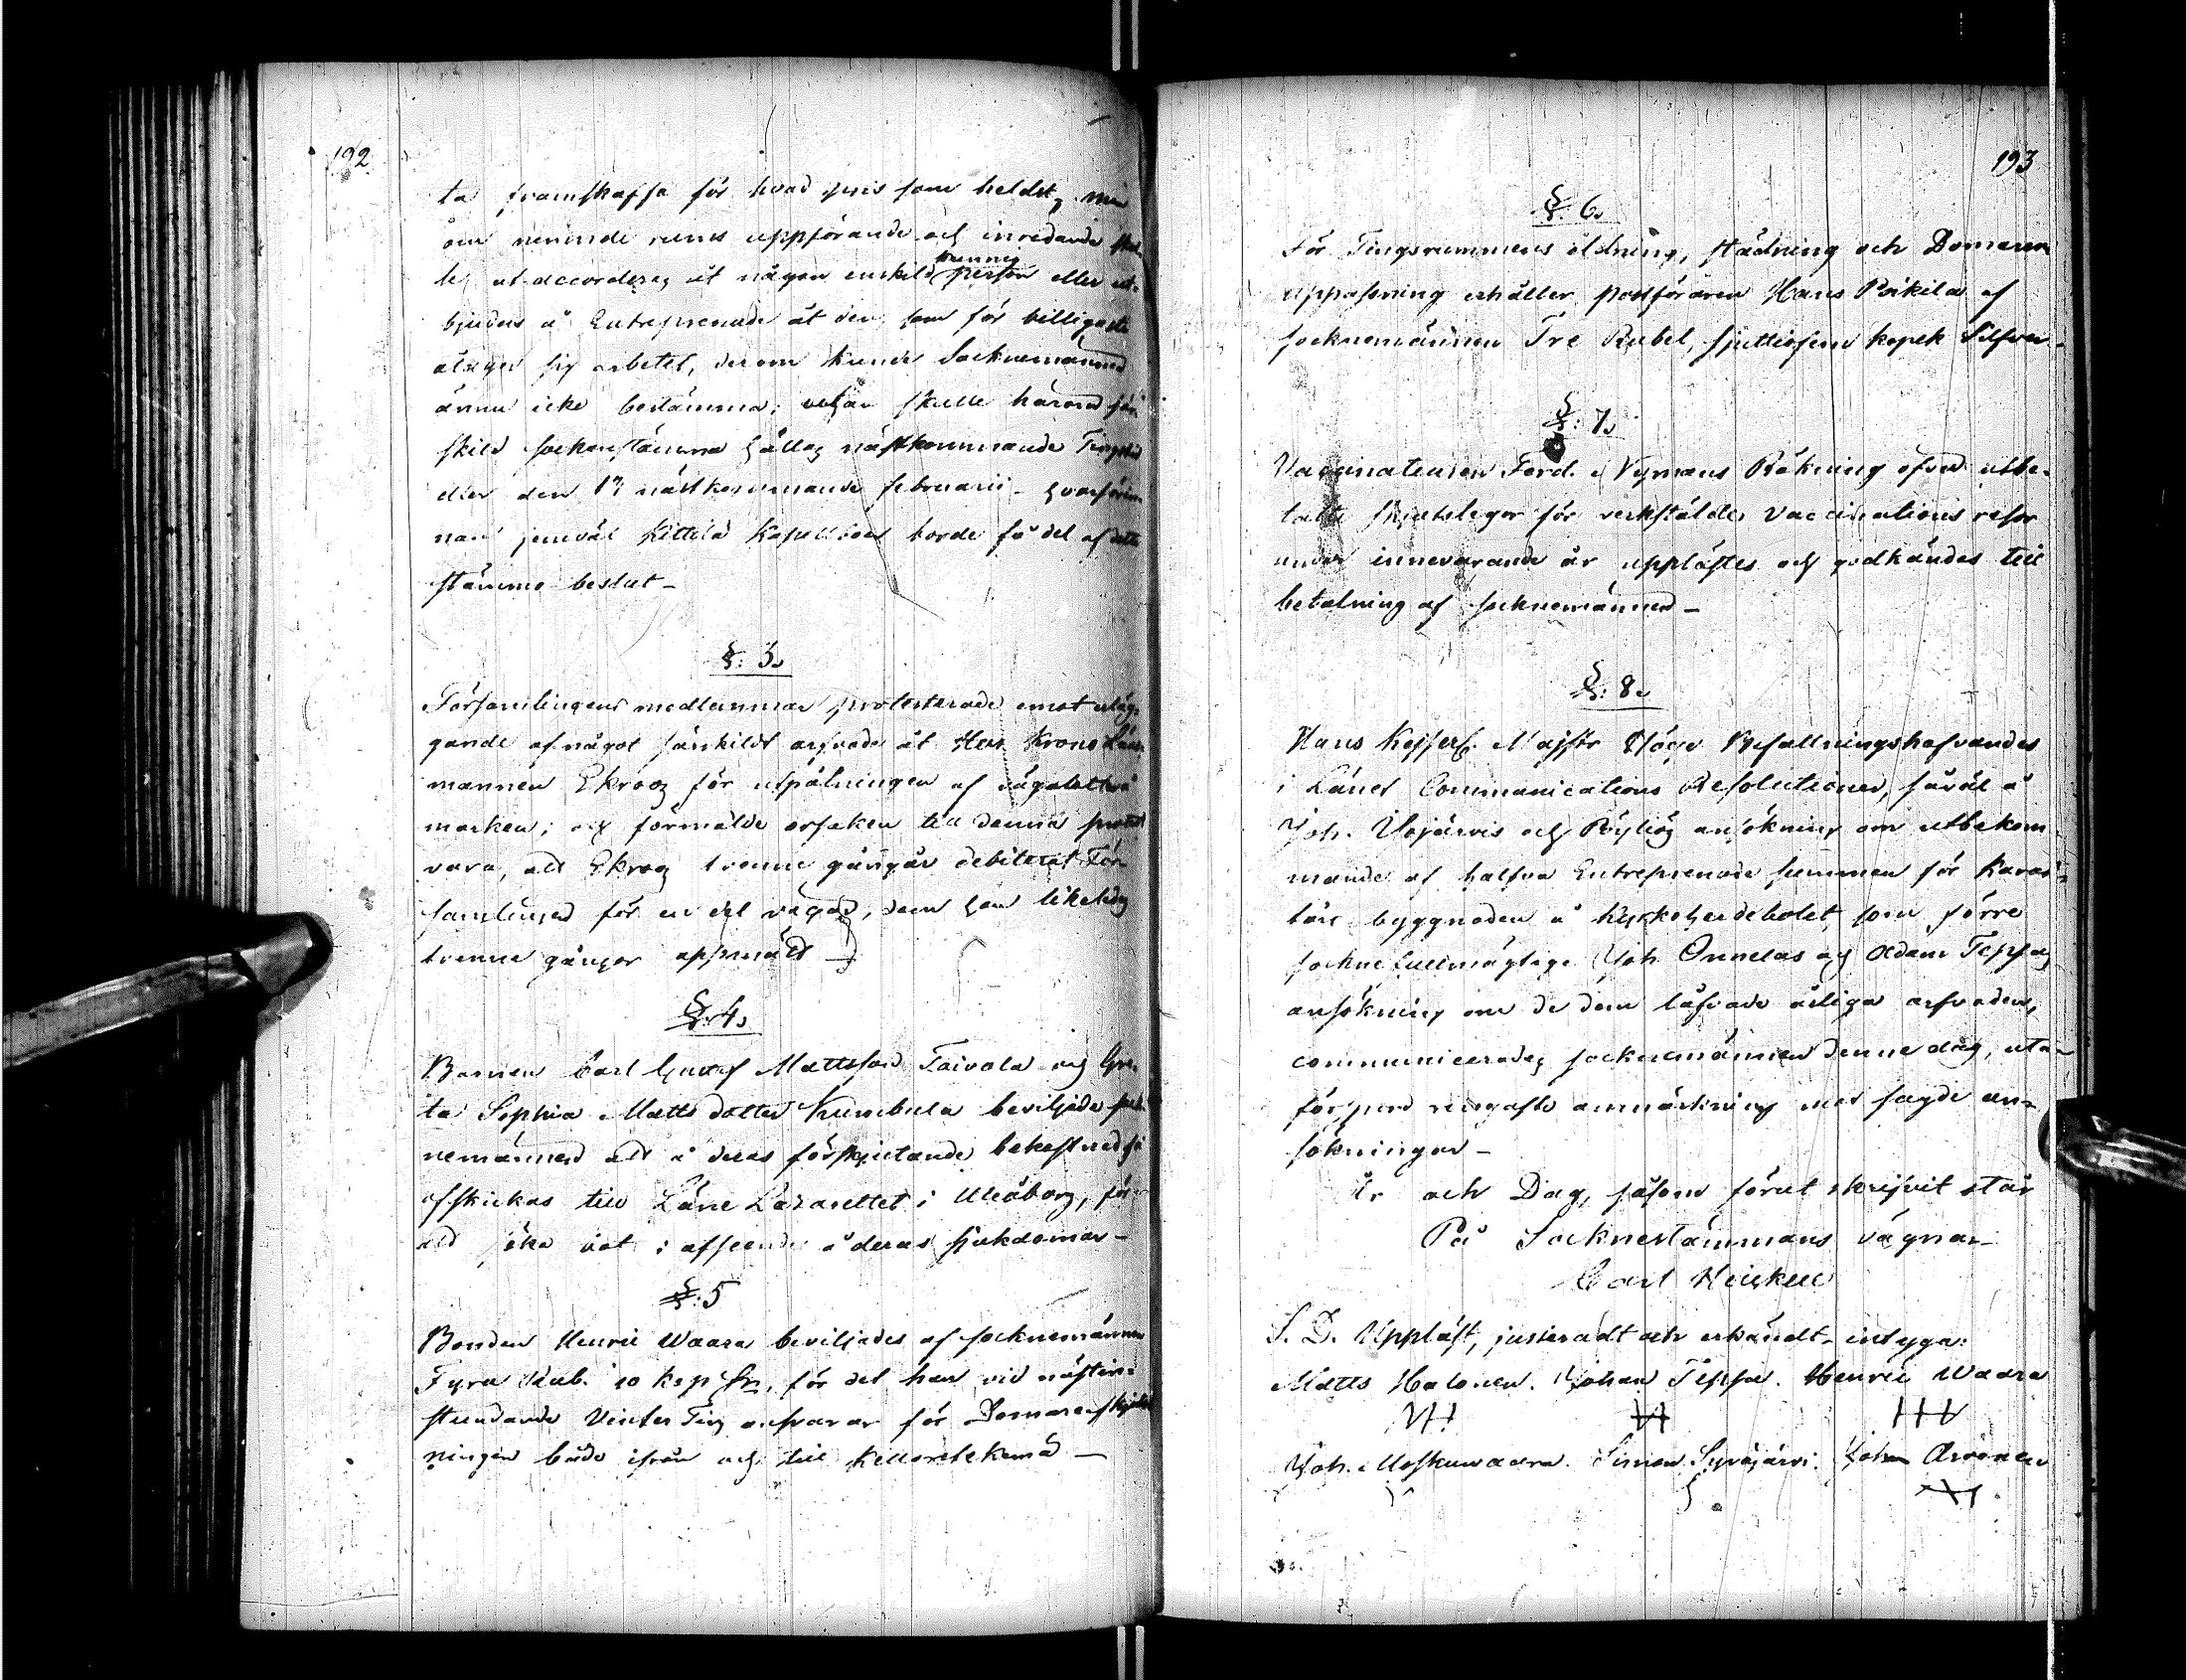 192
ta framskaffa för hvad pris som heldst, men
om nemnde rums uppförande och inredande skul-
le ut accorderas åt någon enskild kunnig person eller ut-
bjudas å Entreprenade åt den som för billigaste
åtager sig arbetet, derom kunde Socknemännen
ännu icke bestämma; utan skulle härom sär-
skild sockenstämma hållas nästkommande Tingstid
eller den 17 nästkommande februarii - hvarförin-
nan jemväl Kittilä Kapellboer borde få del af detta
stämmo beslut -
§: 3.
Församlingens medlemmar protesterade emot erläg-
gande af något särskildt arfvode åt Herr Krono Läns-
mannen Ekroos för utpålningen af vägalotterå
marken; och förmälde orsaken till denna protest
vara, att Ekroos trenne gångår debiterat För-
samlingen för en del vägar, dem han likaledes
trenne gånger uppmätt -
§: 4.
Barnen Carl Gustaf Mattsson Taivala och Gre-
ta Sophia Matts dotter Kumbula beviljade sock-
nemännen att å deras förskjutande bekostnad få
afskickas till Läns Lazarettet i Uleåborg, för
att söka bot i afseende å deras sjukdomar -
§: 5
Bonden Henric Waara beviljades af socknemännen
Fyra Rub. 10 kop Sr, för det han vid nästin-
stundande Vinter Ting ansvarar för Domareskjuts-
ningen både ifrån och till
193
§: 6.
För Tingsrummens eldning, städning och Domarens
uppassning erhåller postföraren Hans Poikila af
socknemännen Tre Rubel, sjuttiofem kopek Silfver -
§: 7.
Vaccinateuren Ferd. Nymans Räkning öfver utbe-
talte skjutslegor för verkstälde vaccinations resor
under innevarande år upplästes och godkändes till
betalning af socknemännen -
§: 8.
Hans Kejserl. Majsts Höge Befallningshafvandes
i Länet Communications Resolutioner, såväl å
Joh. Uojärvis och Pöyliös ansökning om utbekom
mande af halfva Entreprenade summen för Karac-
ters byggnaden å Kyrkoherdebolet, som förre
sockne fullmägtige Joh. Onnelas och Adam Teppas
ansökning om de dem låfvade årliga arfvoden,
communicerades socknemännen denne dag, uta-
för spord ringaste anmärkning mot sagde an-
sökningar -
År och Dag, såsom förut skrifvit står
På Socknestämmans vägnar
Carl Heickell
S. D. Uppläst, justeradt och erkändt, intyga:
Matts Halonen. Johan Teppo. Henric Waara
Joh. Moskuwaara. Simon Syväjärvi. Johan Arvonen